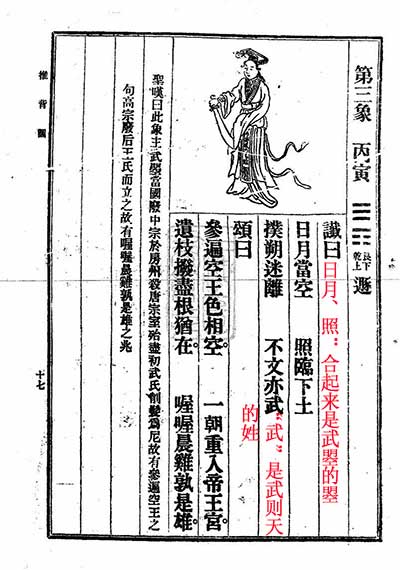 第三象 丙寅 ䷠ 艮下乾上 遯
讖曰 日月、照“合起来是武曌的曌
日月當空 照臨下土
撲朔迷離 不文亦武 “武”是武则天
的姓
頌曰
參遍空王色相空。 一朝重入帝王宮。
遺枝撥盡根猶在。 喔喔晨雞孰是雄。
聖嘆曰此象主武曌當國廢中宗於房州殺唐宗室殆盡初武氏削髮為尼故有參遍空王之
句高宗廢后王氏而立之故有喔喔晨雞孰是雄之兆
推背圖
十七